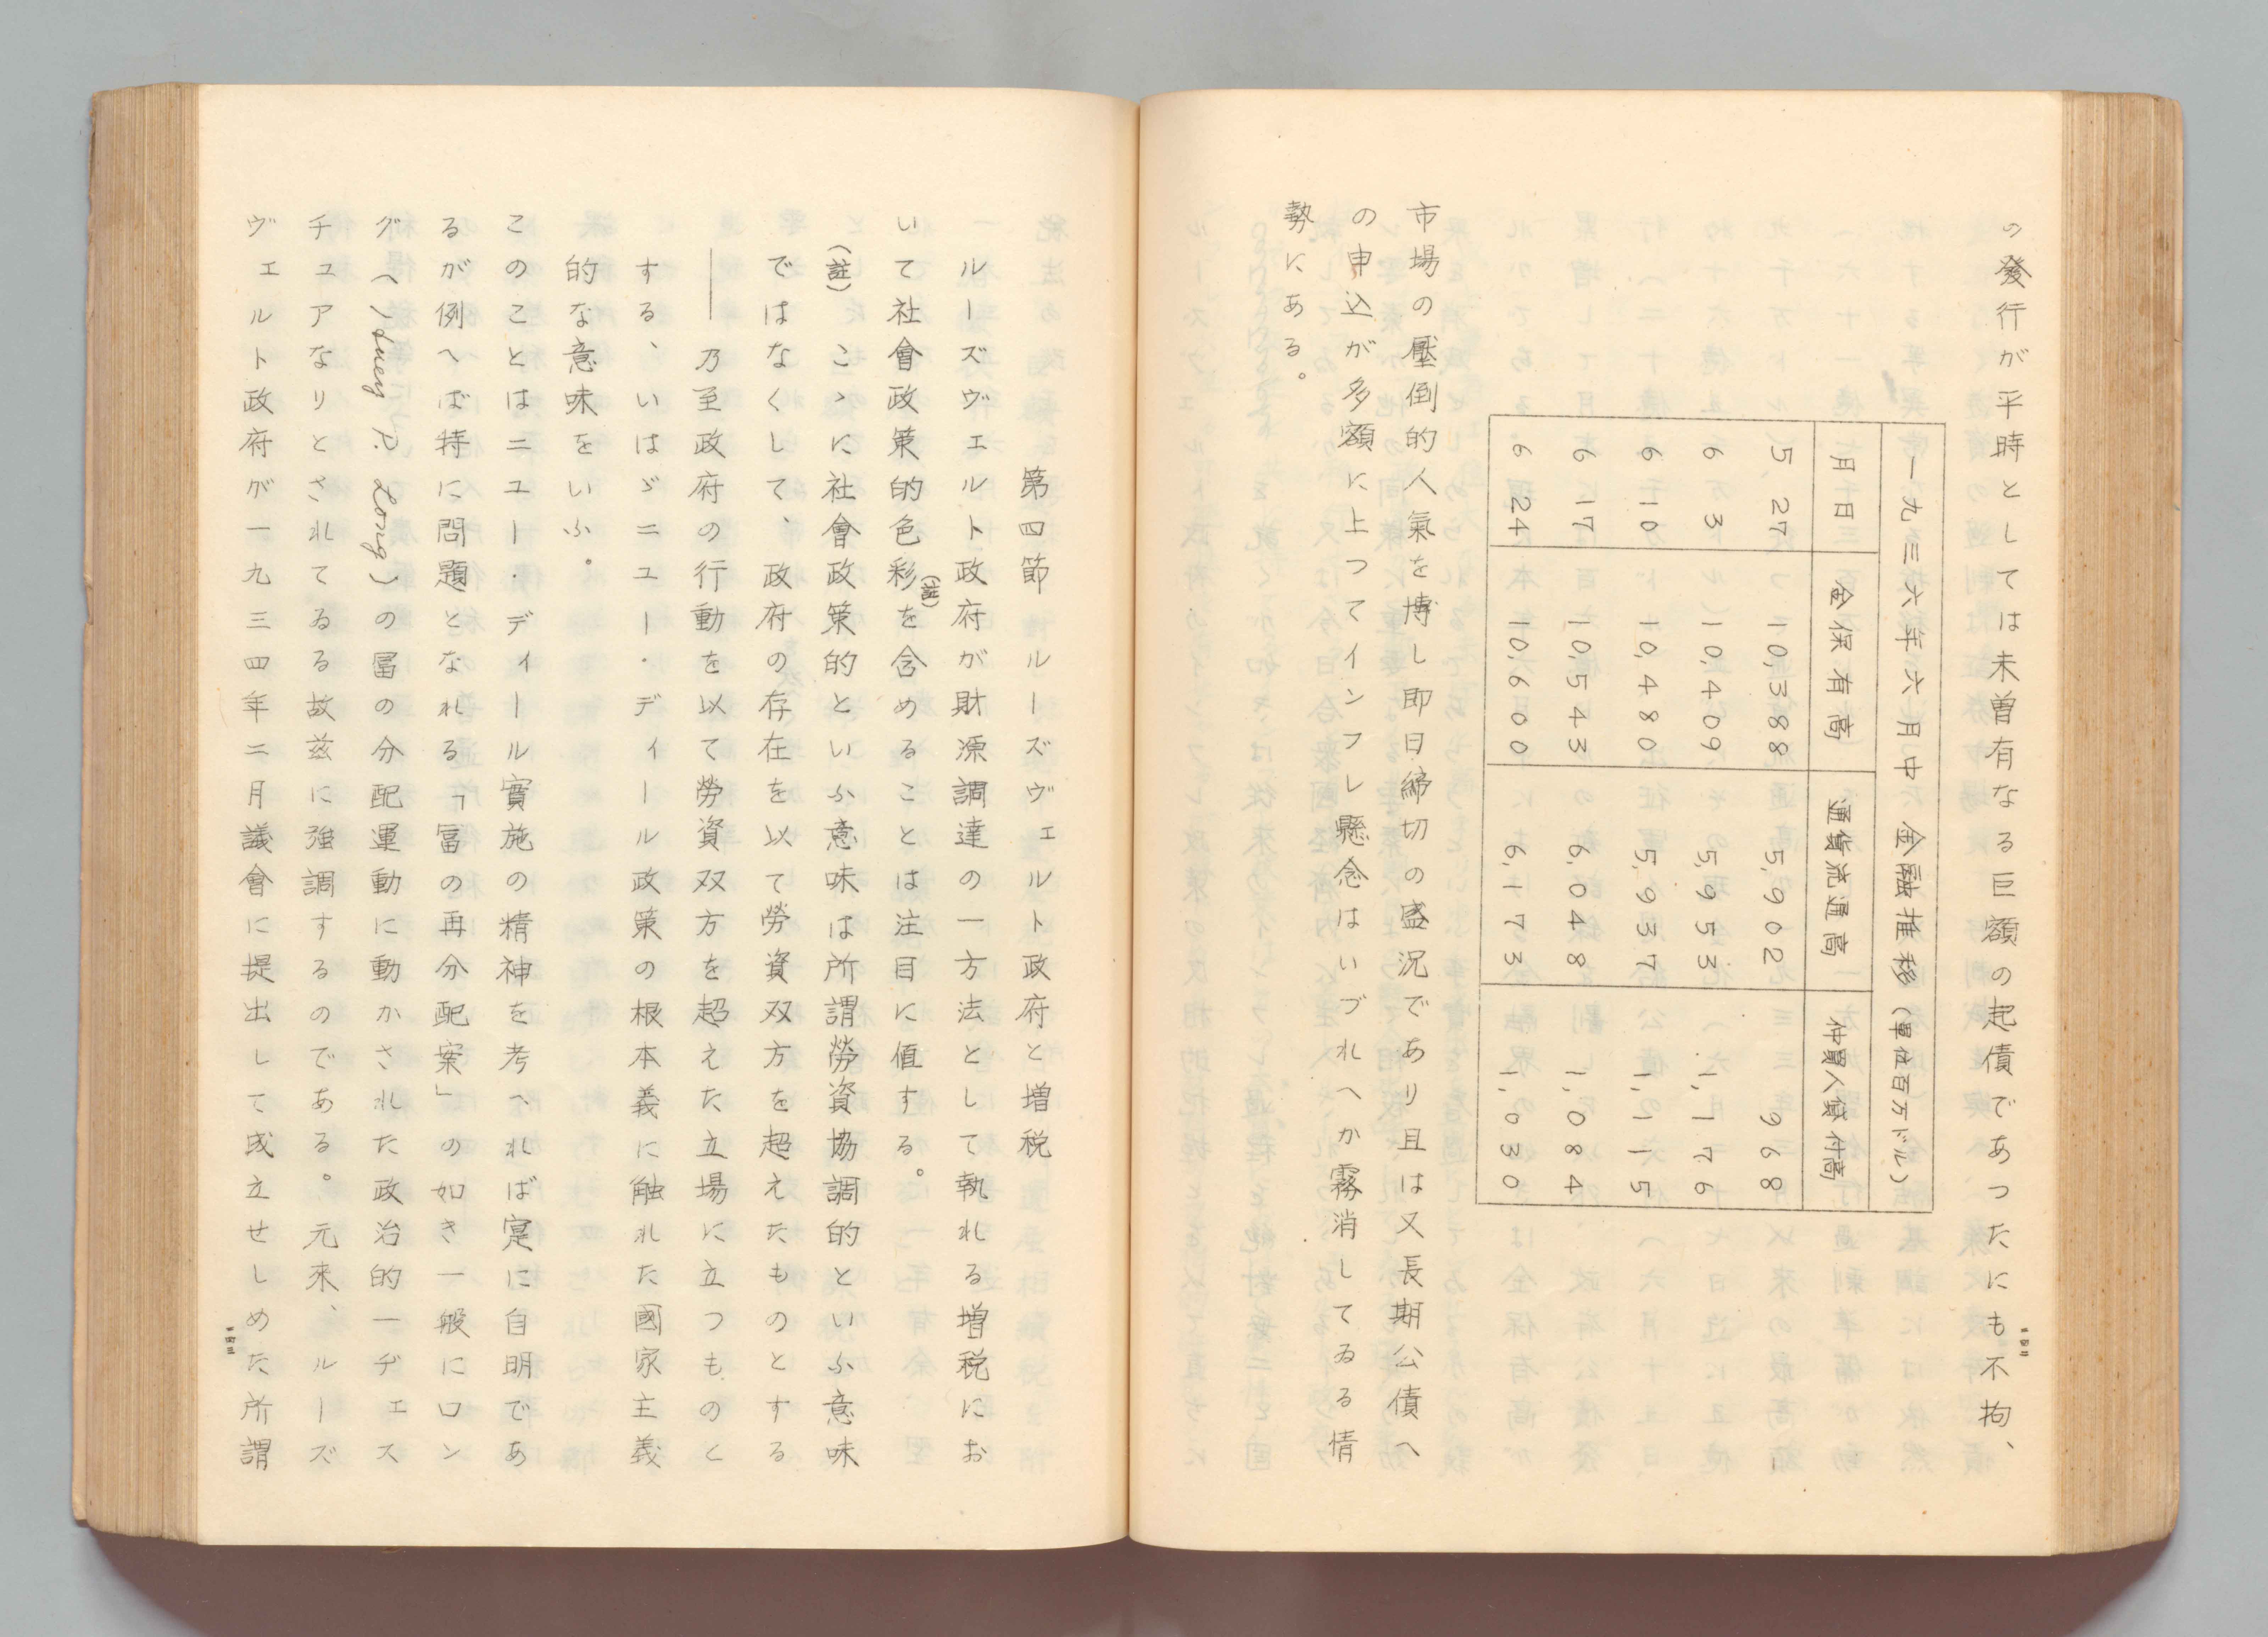 の發行が平時としては未曽有なる巨額の起債であつたにも不拘、
一九三六年六月中金融推移(單位百万ドル)
月日 金保有高 通貨流通高 仲買人貸付高
5、27 10,388 5,902 968
6 3 10,409 5,953 1,176
6 10 10,480 5,937 1,115
6 17 10,543 6,048 1,084
6 24 10,600 6,173 1,030
市場の壓倒的人氣を博し即日締切の盛況であり且は又長期公債へ
の申込が多額に上つてインフレ懸念はいづれへか霧消してゐる情
勢にある。
第四節 ルーズヴェルト政府と増税
ルーズヴェルト政府が財源調達の一方法として執れる増税にお
いて社會政策的色彩(註)を含めることは注目に値する。
(註) こゝに社會政策的といふ意味は所謂勞資協調的といふ意味
ではなくして、政府の存在を以て勞資双方を超えたものとする
——乃至政府の行動を以て勞資双方を超えた立場に立つものと
する、いはゞニユー・ディール政策の根本義に触れた國家主義
的な意味をいふ。
このことはニユー・ディール實施の精神を考へれば寔に自明であ
るが例へば特に問題となれる「冨の再分配案」の如き一般にロン
グ(Huey P. Long)の冨の分配運動に動かされた政治的一ヂェス
チュアなりとされてゐる故茲に強調するのである。元來、ルーズ
ヴェルト政府が一九三四年二月議會に提出して成立せしめた所謂